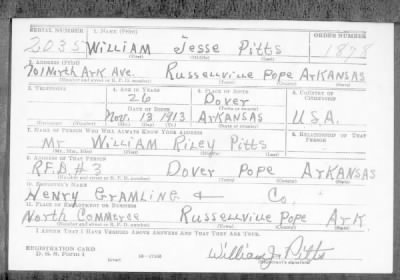 SERIAL NUMBER 1. NAME (Print) ORDER NUMBER
2035 William Jesse Pitts 1878
(First) (Middle) (Last)
2. ADDRESS (Print)
701 North Ark Ave. Russellville Pope Arkansas
(Number and street or R. F. D. number) (Town) (County) (State)
3. TELEPHONE 4. AGE IN YEARS 5. PLACE OF BIRTH 6. COUNTRY OF CITIZENSHIP
26 Dover
DATE OF BIRTH (Town or county)
Nov. 13 1913 Arkansas U.S.A.
(Exchange) (Number) (Mo.) (Day) (Yr.) (State or country)
7. NAME OF PERSON WHO WILL ALWAYS KNOW YOUR ADDRESS 8. RELATIONSHIP OF THAT PERSON
Mr William Riley Pitts
(Mr., Mrs., Miss) (First) (Middle) (Last)
9. ADDRESS OF THAT PERSON
R.F.D. #3 Dover Pope Arkansas
(Number and street or R. F. D. number) (Town) (County) (State)
10. EMPLOYER'S NAME
Henry Gramling + Co.
11. PLACE OF EMPLOYMENT OR BUSINESS
North Commerce Russellville Pope Ark
(Number and street or R. F. D. number) (Town) (County) (State)
I AFFIRM THAT I HAVE VERIFIED ABOVE ANSWERS AND THAT THEY ARE TRUE.
REGISTRATION CARD
D. S. S. Form 1 (over) William J. Pitts
(Registrant's signature)